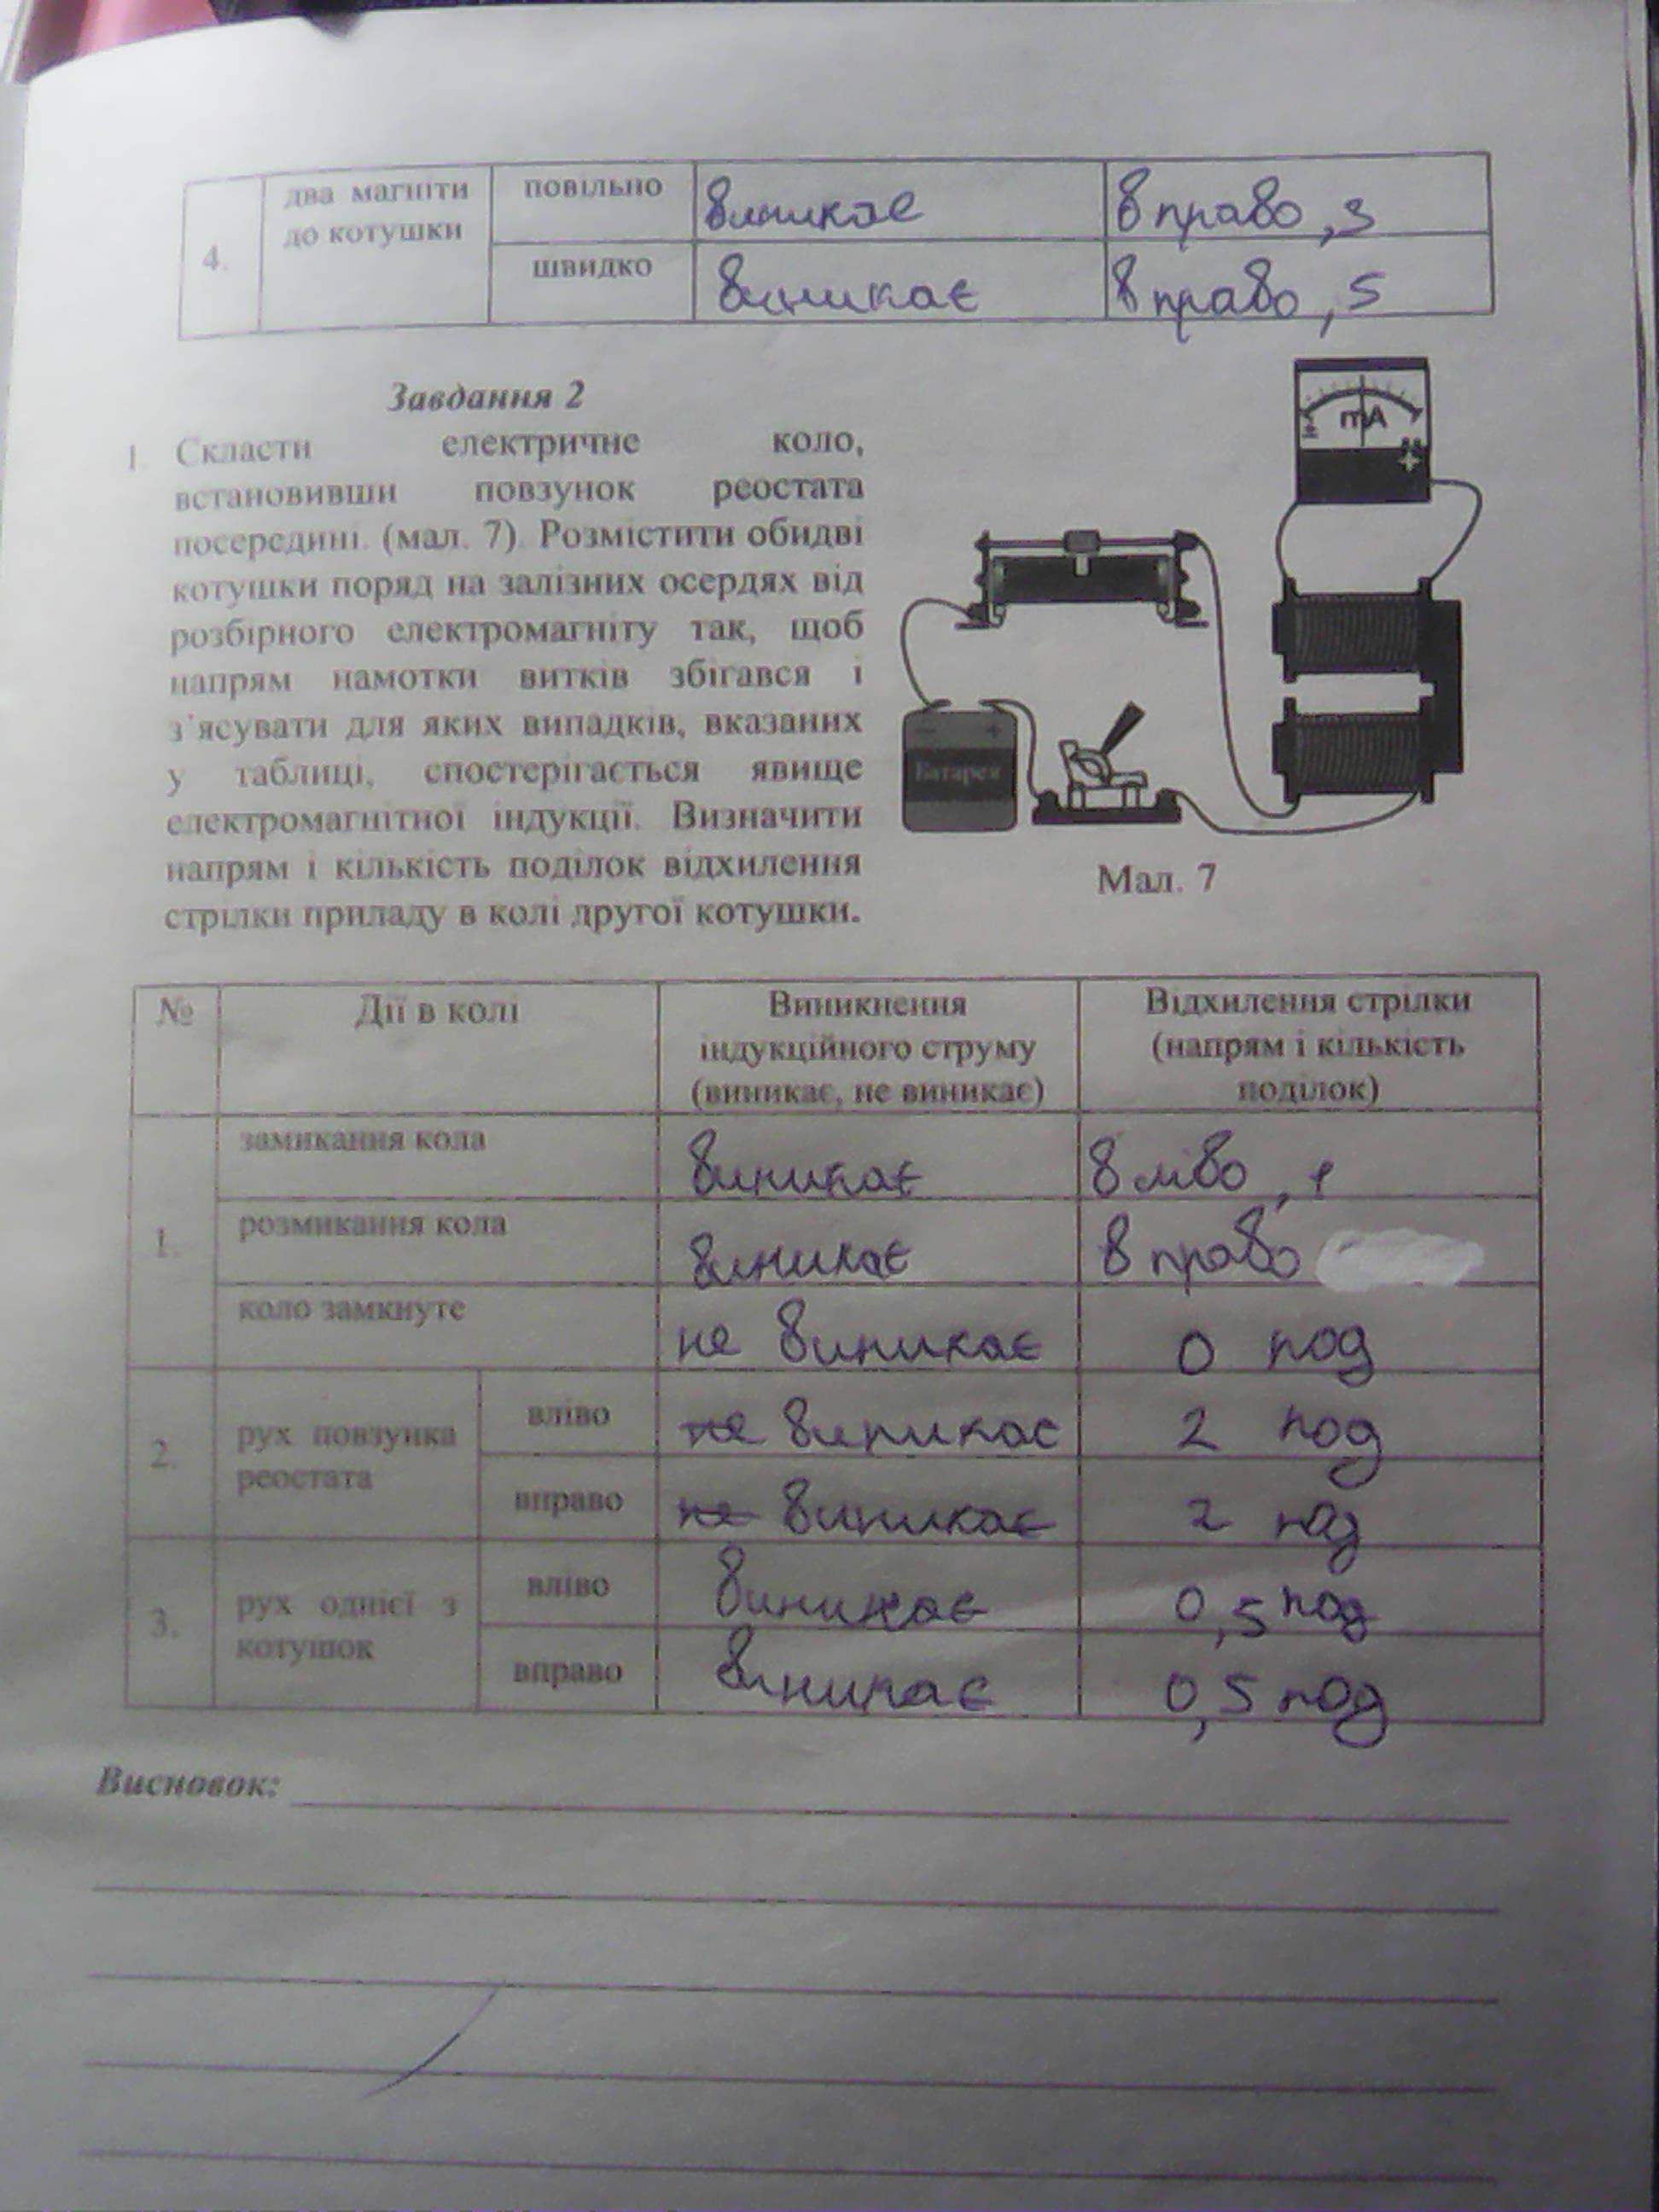 4. два магніти до котушки повільно виникає вправо, 3
швидко виникає вправо, 5
Завдання 2
1. Скласти електричне коло,
встановивши повзунок реостата
посередині. (мал. 7). Розмістити обидві
котушки поряд на залізних осердях від
розбірного електромагніту так, щоб
напрям намотки витків збігався і
з'ясувати для яких випадків, вказаних
у таблиці, спостерігається явище
електромагнітної індукції. Визначити
напрям і кількість поділок відхилення
стрілки приладу в колі другої котушки.
mA
+
− +
Батарея
Мал. 7
№ Дії в колі Виникнення індукційного струму (виникає, не виникає) Відхилення стрілки (напрям і кількість поділок)
1. замикання кола виникає вліво, 1
розмикання кола виникає вправо
коло замкнуте не виникає 0 под
2. рух повзунка реостата вліво не виникає 2 под
вправо не виникає 2 под
3. рух однієї з котушок вліво виникає 0,5 под
вправо виникає 0,5 под
Висновок: